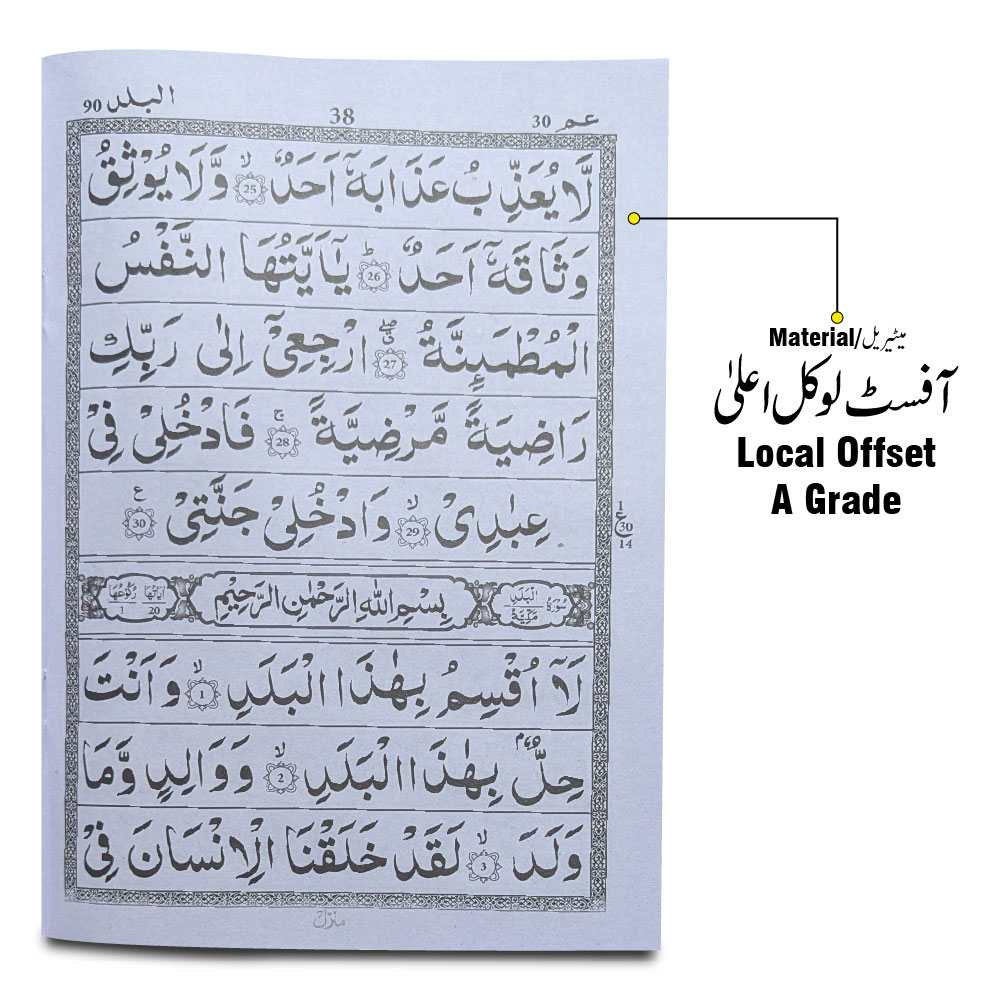 عم 30
38
البلد 90
لَّا يُعَذِّبُ عَذَابَهٗۤ اَحَدٌ ۙ‏ 25 وَّلَا يُوْثِقُ
وَثَاقَهٗۤ اَحَدٌ ؕ‏ 26 يٰۤاَيَّتُهَا النَّفْسُ
الْمُطْمَىِٕنَّةُ ۖۗ‏ 27 ارْجِعِيْۤ اِلٰى رَبِّكِ
رَاضِيَةً مَّرْضِيَّةً ۚ‏ 28 فَادْخُلِيْ فِيْ
عِبٰدِيْ ۙ‏ 29 وَادْخُلِيْ جَنَّتِيْ 30 ع
1
ع 30
14
سُوْرَةُ الْبَلَدِ مَكِّيَّةٌ
بِسْمِ اللّٰهِ الرَّحْمٰنِ الرَّحِيْمِ
اٰيَاتُهَا 20 رُكُوْعُهَا 1
لَاۤ اُقْسِمُ بِهٰذَا الْبَلَدِ ۙ‏ 1 وَاَنْتَ
حِلٌّۢ بِهٰذَا الْبَلَدِ ۙ‏ 2 وَوَالِدٍ وَّمَا
وَلَدَ ۙ‏ 3 لَقَدْ خَلَقْنَا الْاِنْسَانَ فِيْ
منزل
میٹیریل/Material
آفسٹ لوکل اعلیٰ
Local Offset
A Grade